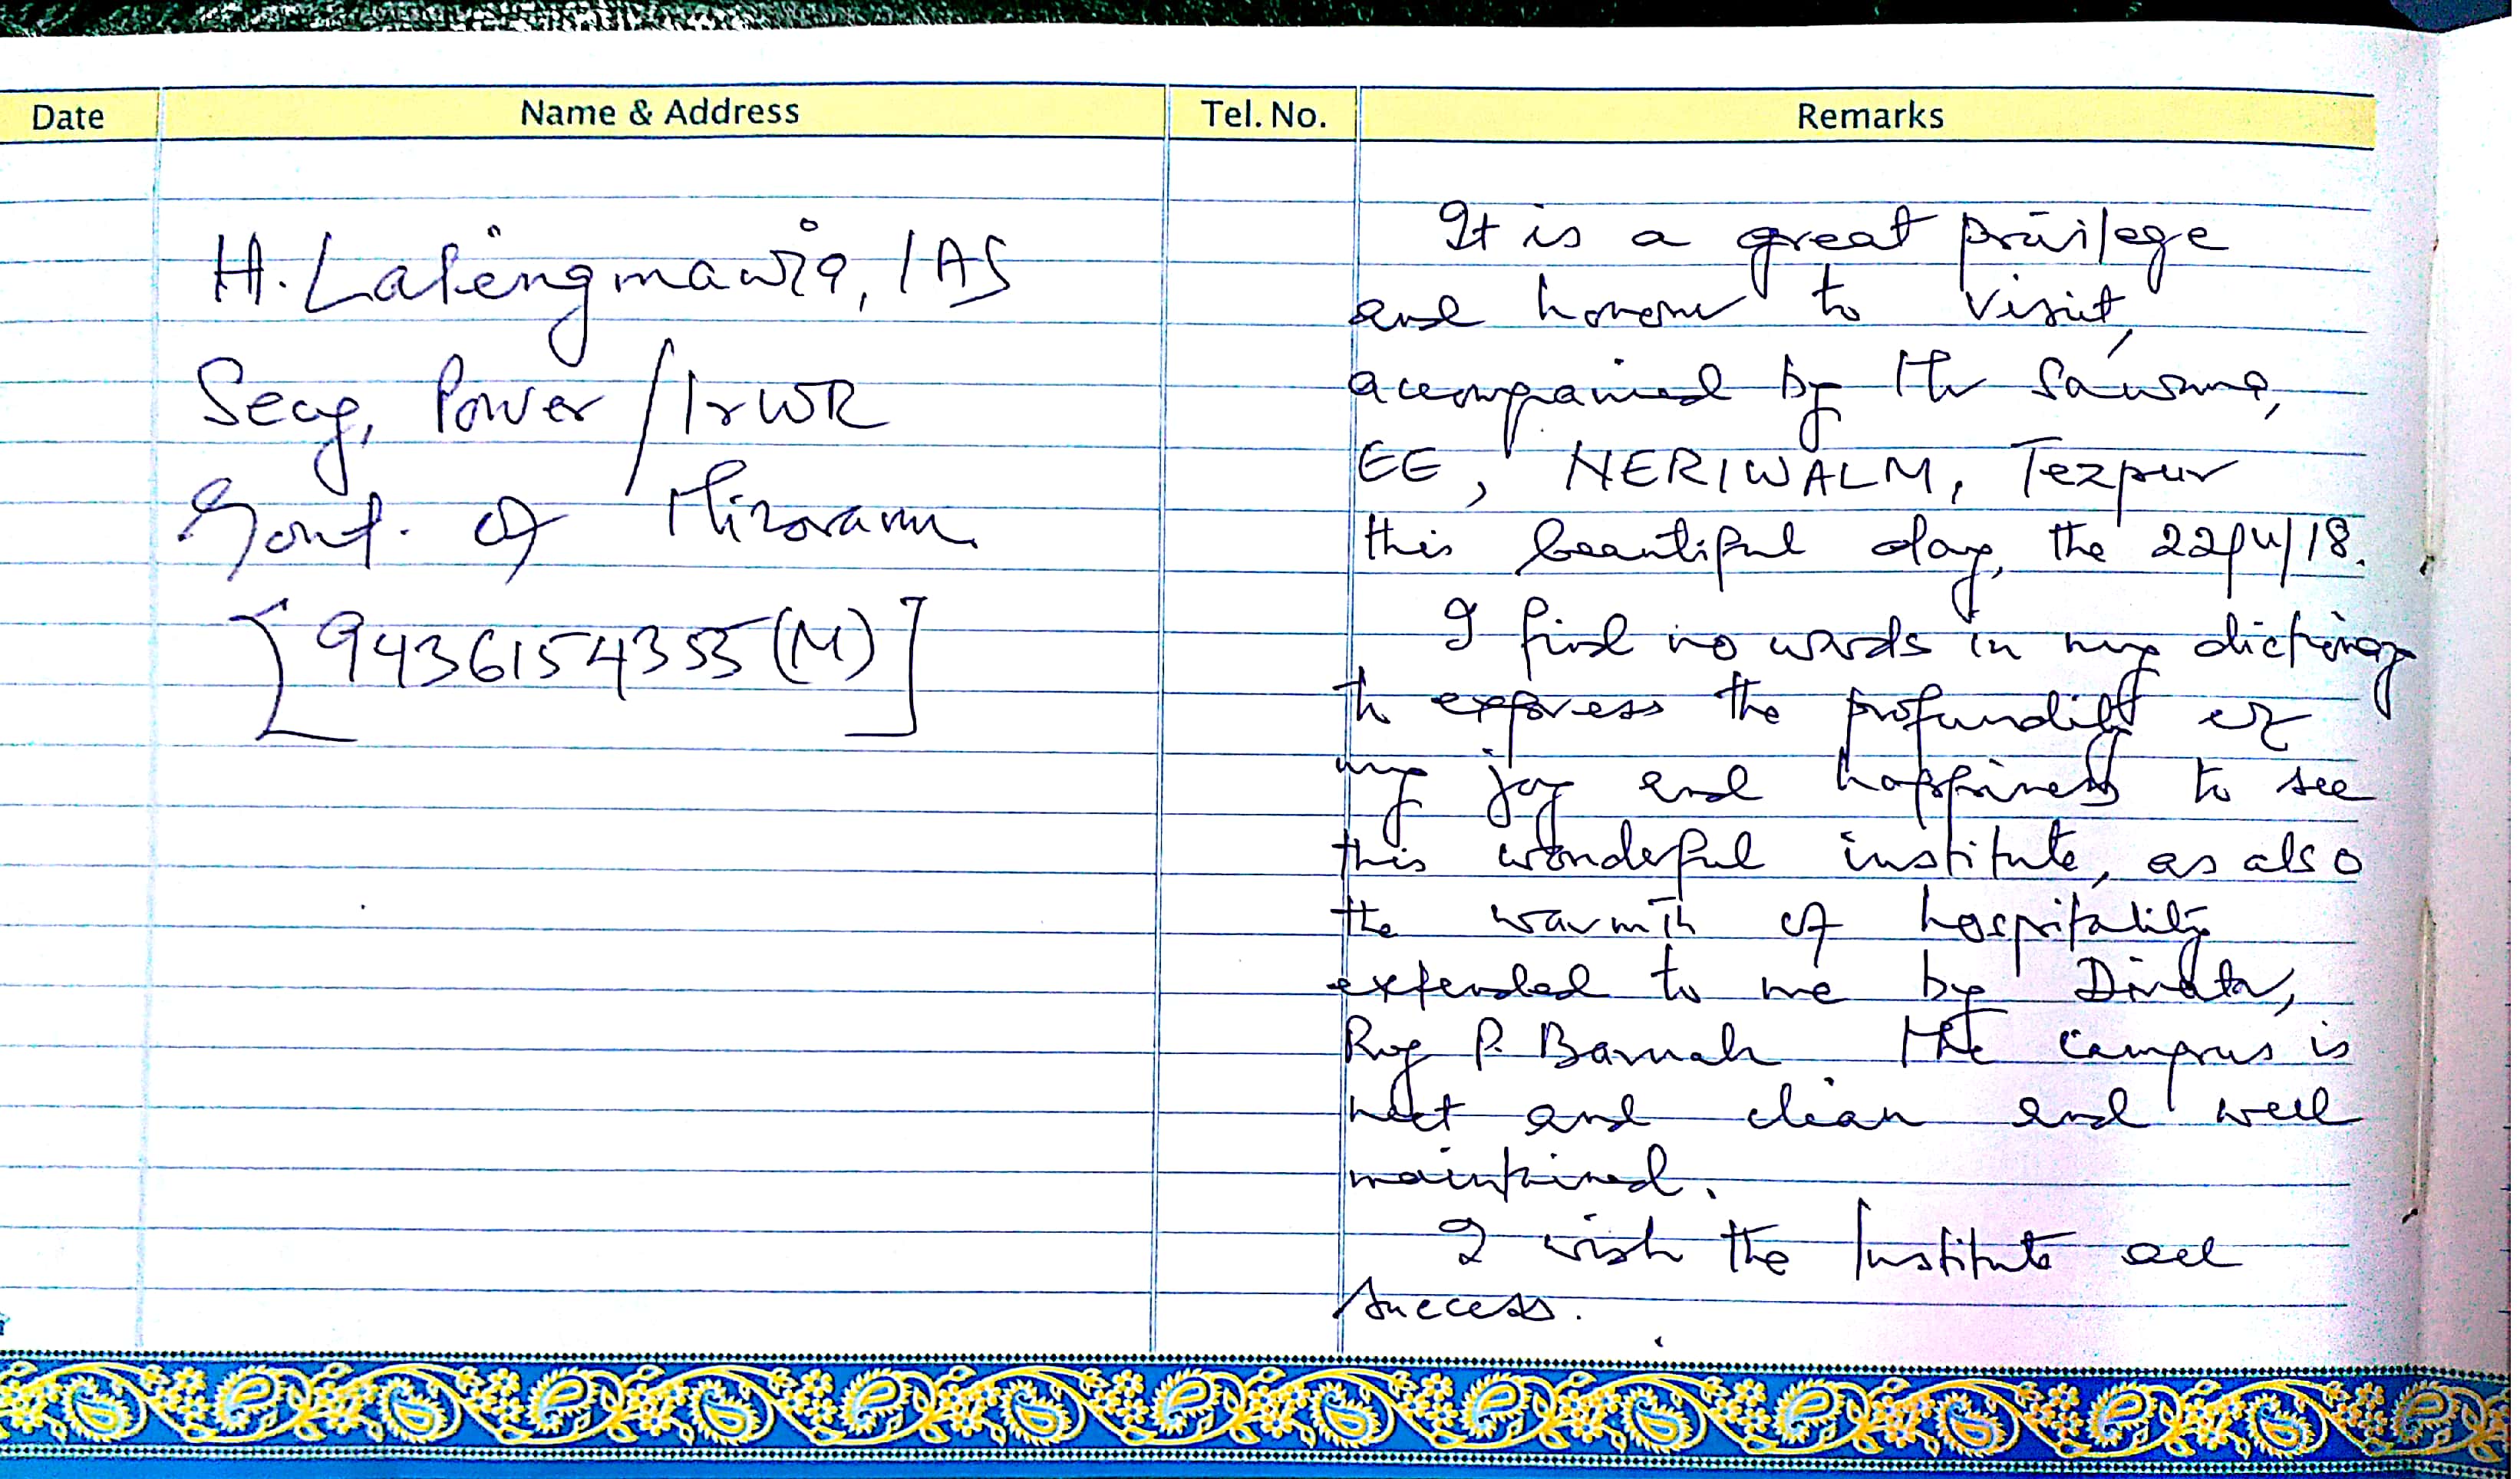 Date Name & Address Tel. No. Remarks
H. Lalengmawia, IAS
Secy, Power/I&WR
Govt. of Mizoram
[9436154355(M)]
It is a great privilege
and honour to visit,
accompanied by
EE, NERIWALM, Tezpur
this beautiful day, the 22/ /18.
I find no words in my dictionary
to express the profundity of
my joy and happiness to see
this wonderful institute, as also
the warmth of hospitality
extended to me by Director,
P. Baruah. The campus is
neat and clean and well
maintained.
I wish the Institute all
success.